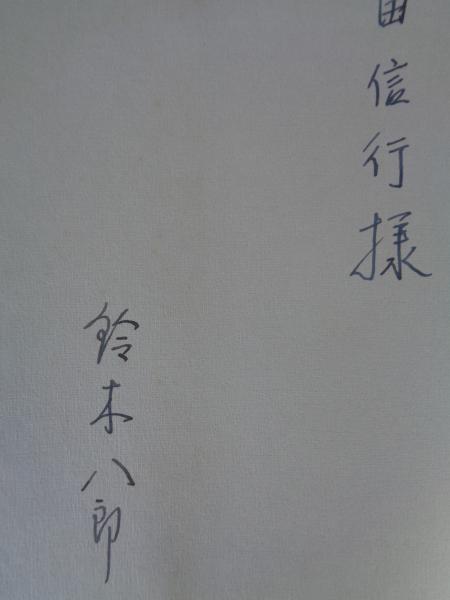 田信行様
鈴木八郎